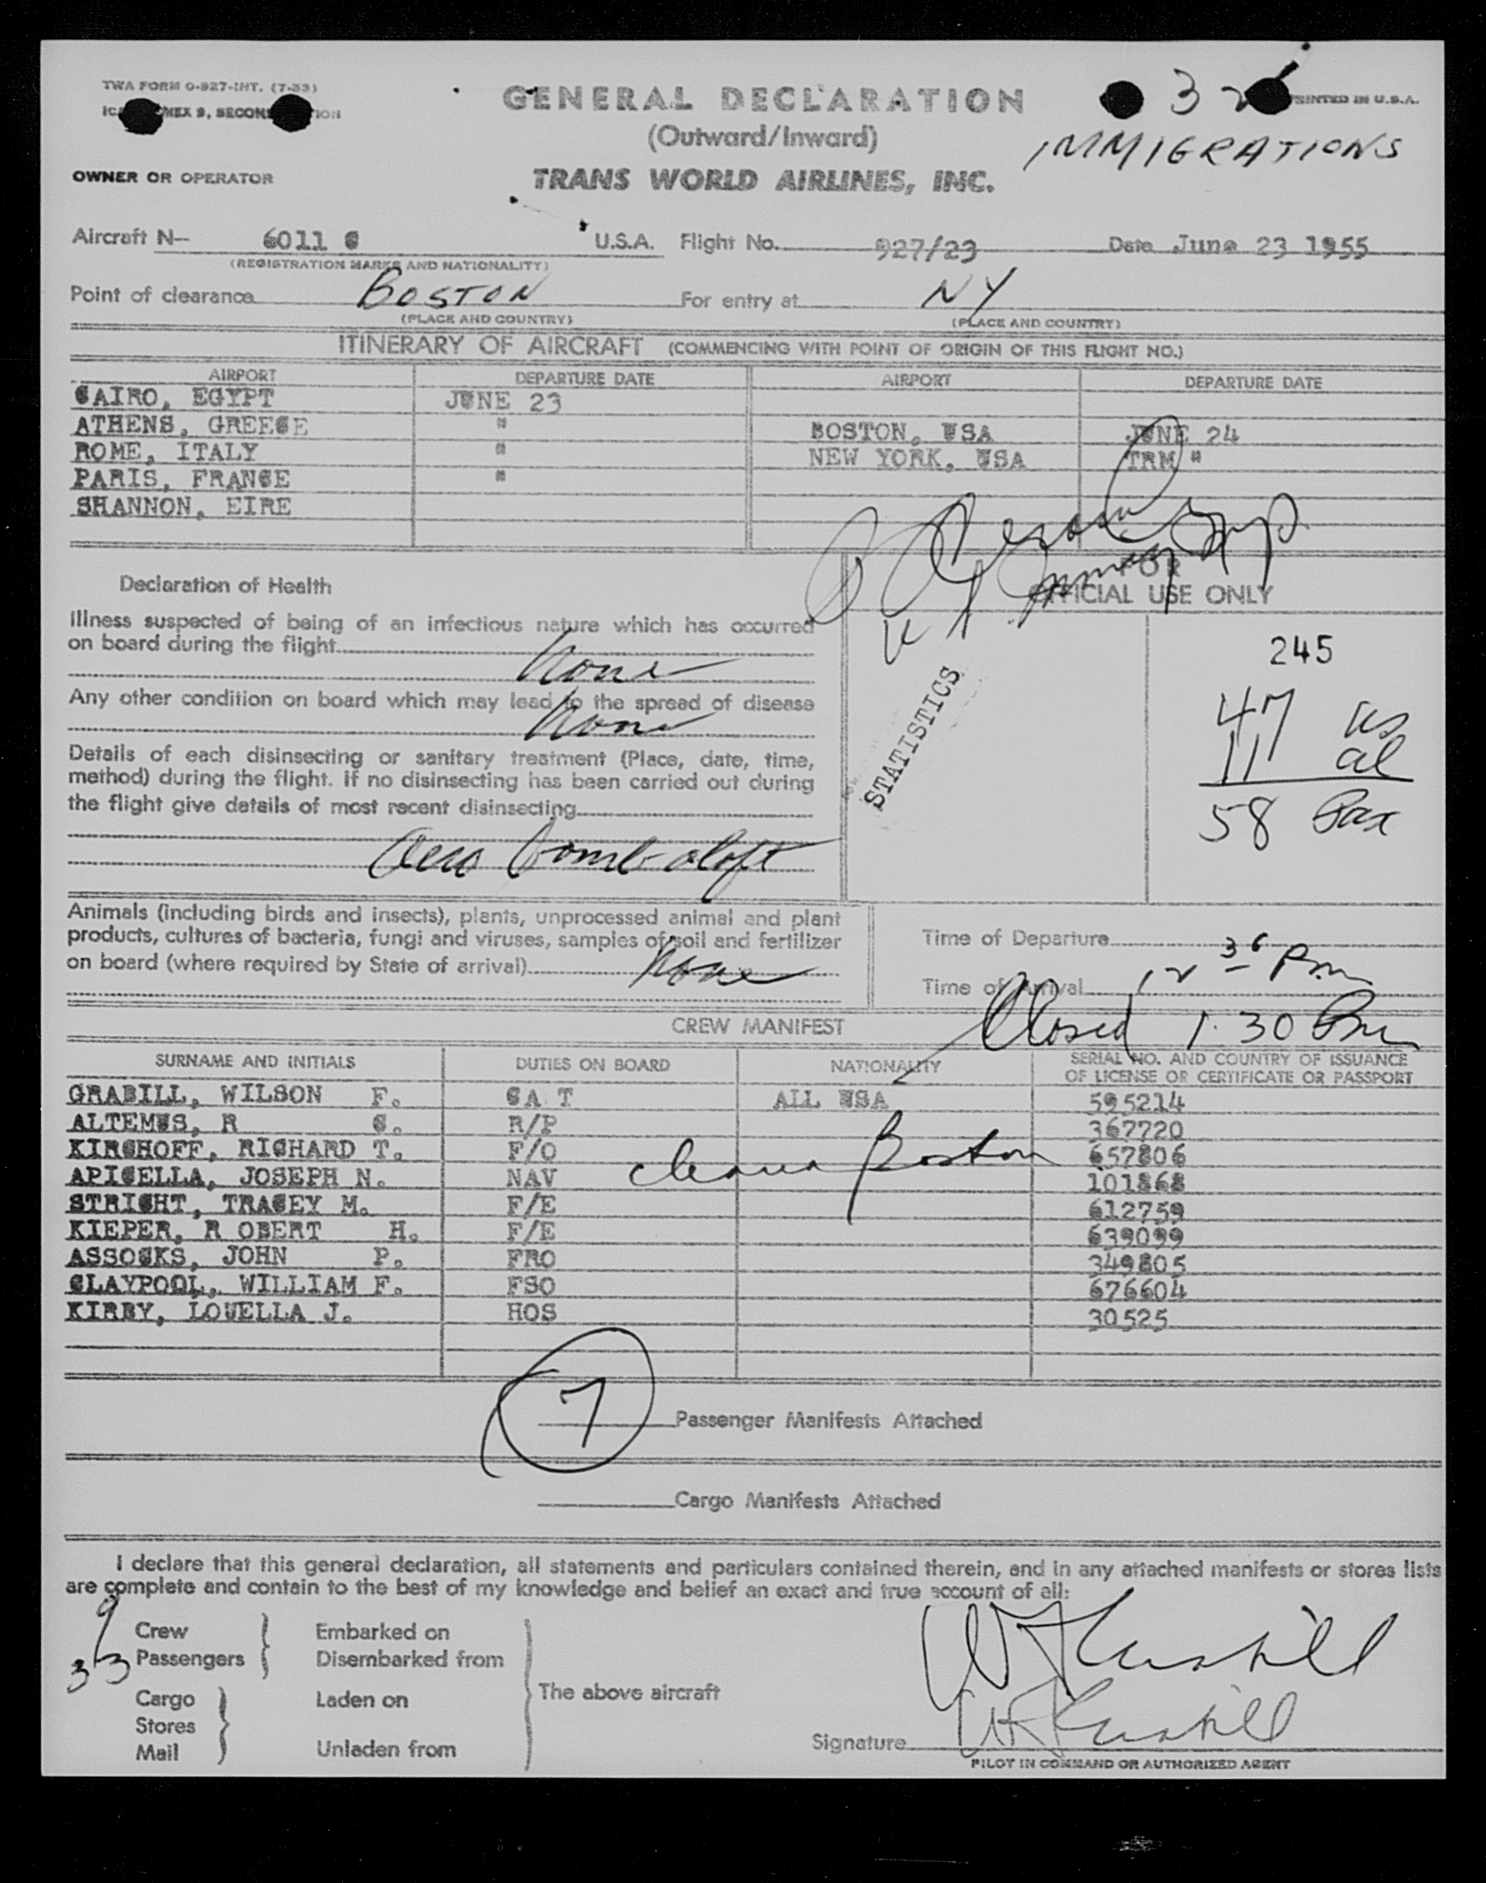 TWA FORM O-927-INT. (7-53)
GENERAL DECLARATION
32
PRINTED IN U.S.A.
(Outward/Inward)
IMMIGRATIONS
OWNER OR OPERATOR
TRANS WORLD AIRLINES, INC.
Aircraft N- 6011 C U.S.A. Flight No. 927/23 Date June 23 1955
(REGISTRATION MARKS AND NATIONALITY)
Point of clearance BOSTON For entry at NY
(PLACE AND COUNTRY) (PLACE AND COUNTRY)
ITINERARY OF AIRCRAFT (COMMENCING WITH POINT OF ORIGIN OF THIS FLIGHT NO.)
AIRPORT DEPARTURE DATE AIRPORT DEPARTURE DATE
CAIRO, EGYPT JUNE 23
ATHENS, GREECE " BOSTON, USA JUNE 24
ROME, ITALY " NEW YORK, USA TRM "
PARIS, FRANCE "
SHANNON, EIRE
FOR
OFFICIAL USE ONLY
Declaration of Health
Illness suspected of being of an infectious nature which has occurred
on board during the flight
None
Any other condition on board which may lead to the spread of disease
None
Details of each disinsecting or sanitary treatment (Place, date, time,
method) during the flight. If no disinsecting has been carried out during
the flight give details of most recent disinsecting
Aero bomb aloft
STATISTICS
245
47 US
11 al
58 Pax
Animals (including birds and insects), plants, unprocessed animal and plant
products, cultures of bacteria, fungi and viruses, samples of soil and fertilizer
on board (where required by State of arrival) None
Time of Departure
Time of Arrival 12 36 Pm
Closed 1:30 Pm
CREW MANIFEST
SURNAME AND INITIALS DUTIES ON BOARD NATIONALITY SERIAL NO. AND COUNTRY OF ISSUANCE
OF LICENSE OR CERTIFICATE OR PASSPORT
GRABILL, WILSON F. CA T ALL USA 595214
ALTEMUS, R C. R/P 367720
KIRCHOFF, RICHARD T. F/O 657806
APICELLA, JOSEPH N. NAV 101868
STRIGHT, TRACEY M. F/E 612759
KIEPER, R OBERT H. F/E 639099
ASSOCKS, JOHN P. FRO 349805
CLAYPOOL, WILLIAM F. FSO 676604
KIRBY, LOUELLA J. HOS 30525
Boston
7 Passenger Manifests Attached
Cargo Manifests Attached
I declare that this general declaration, all statements and particulars contained therein, and in any attached manifests or stores lists
are complete and contain to the best of my knowledge and belief an exact and true account of all:
9 Crew Embarked on
33 Passengers Disembarked from
Cargo Laden on The above aircraft
Stores
Mail Unladen from
Signature
PILOT IN COMMAND OR AUTHORIZED AGENT